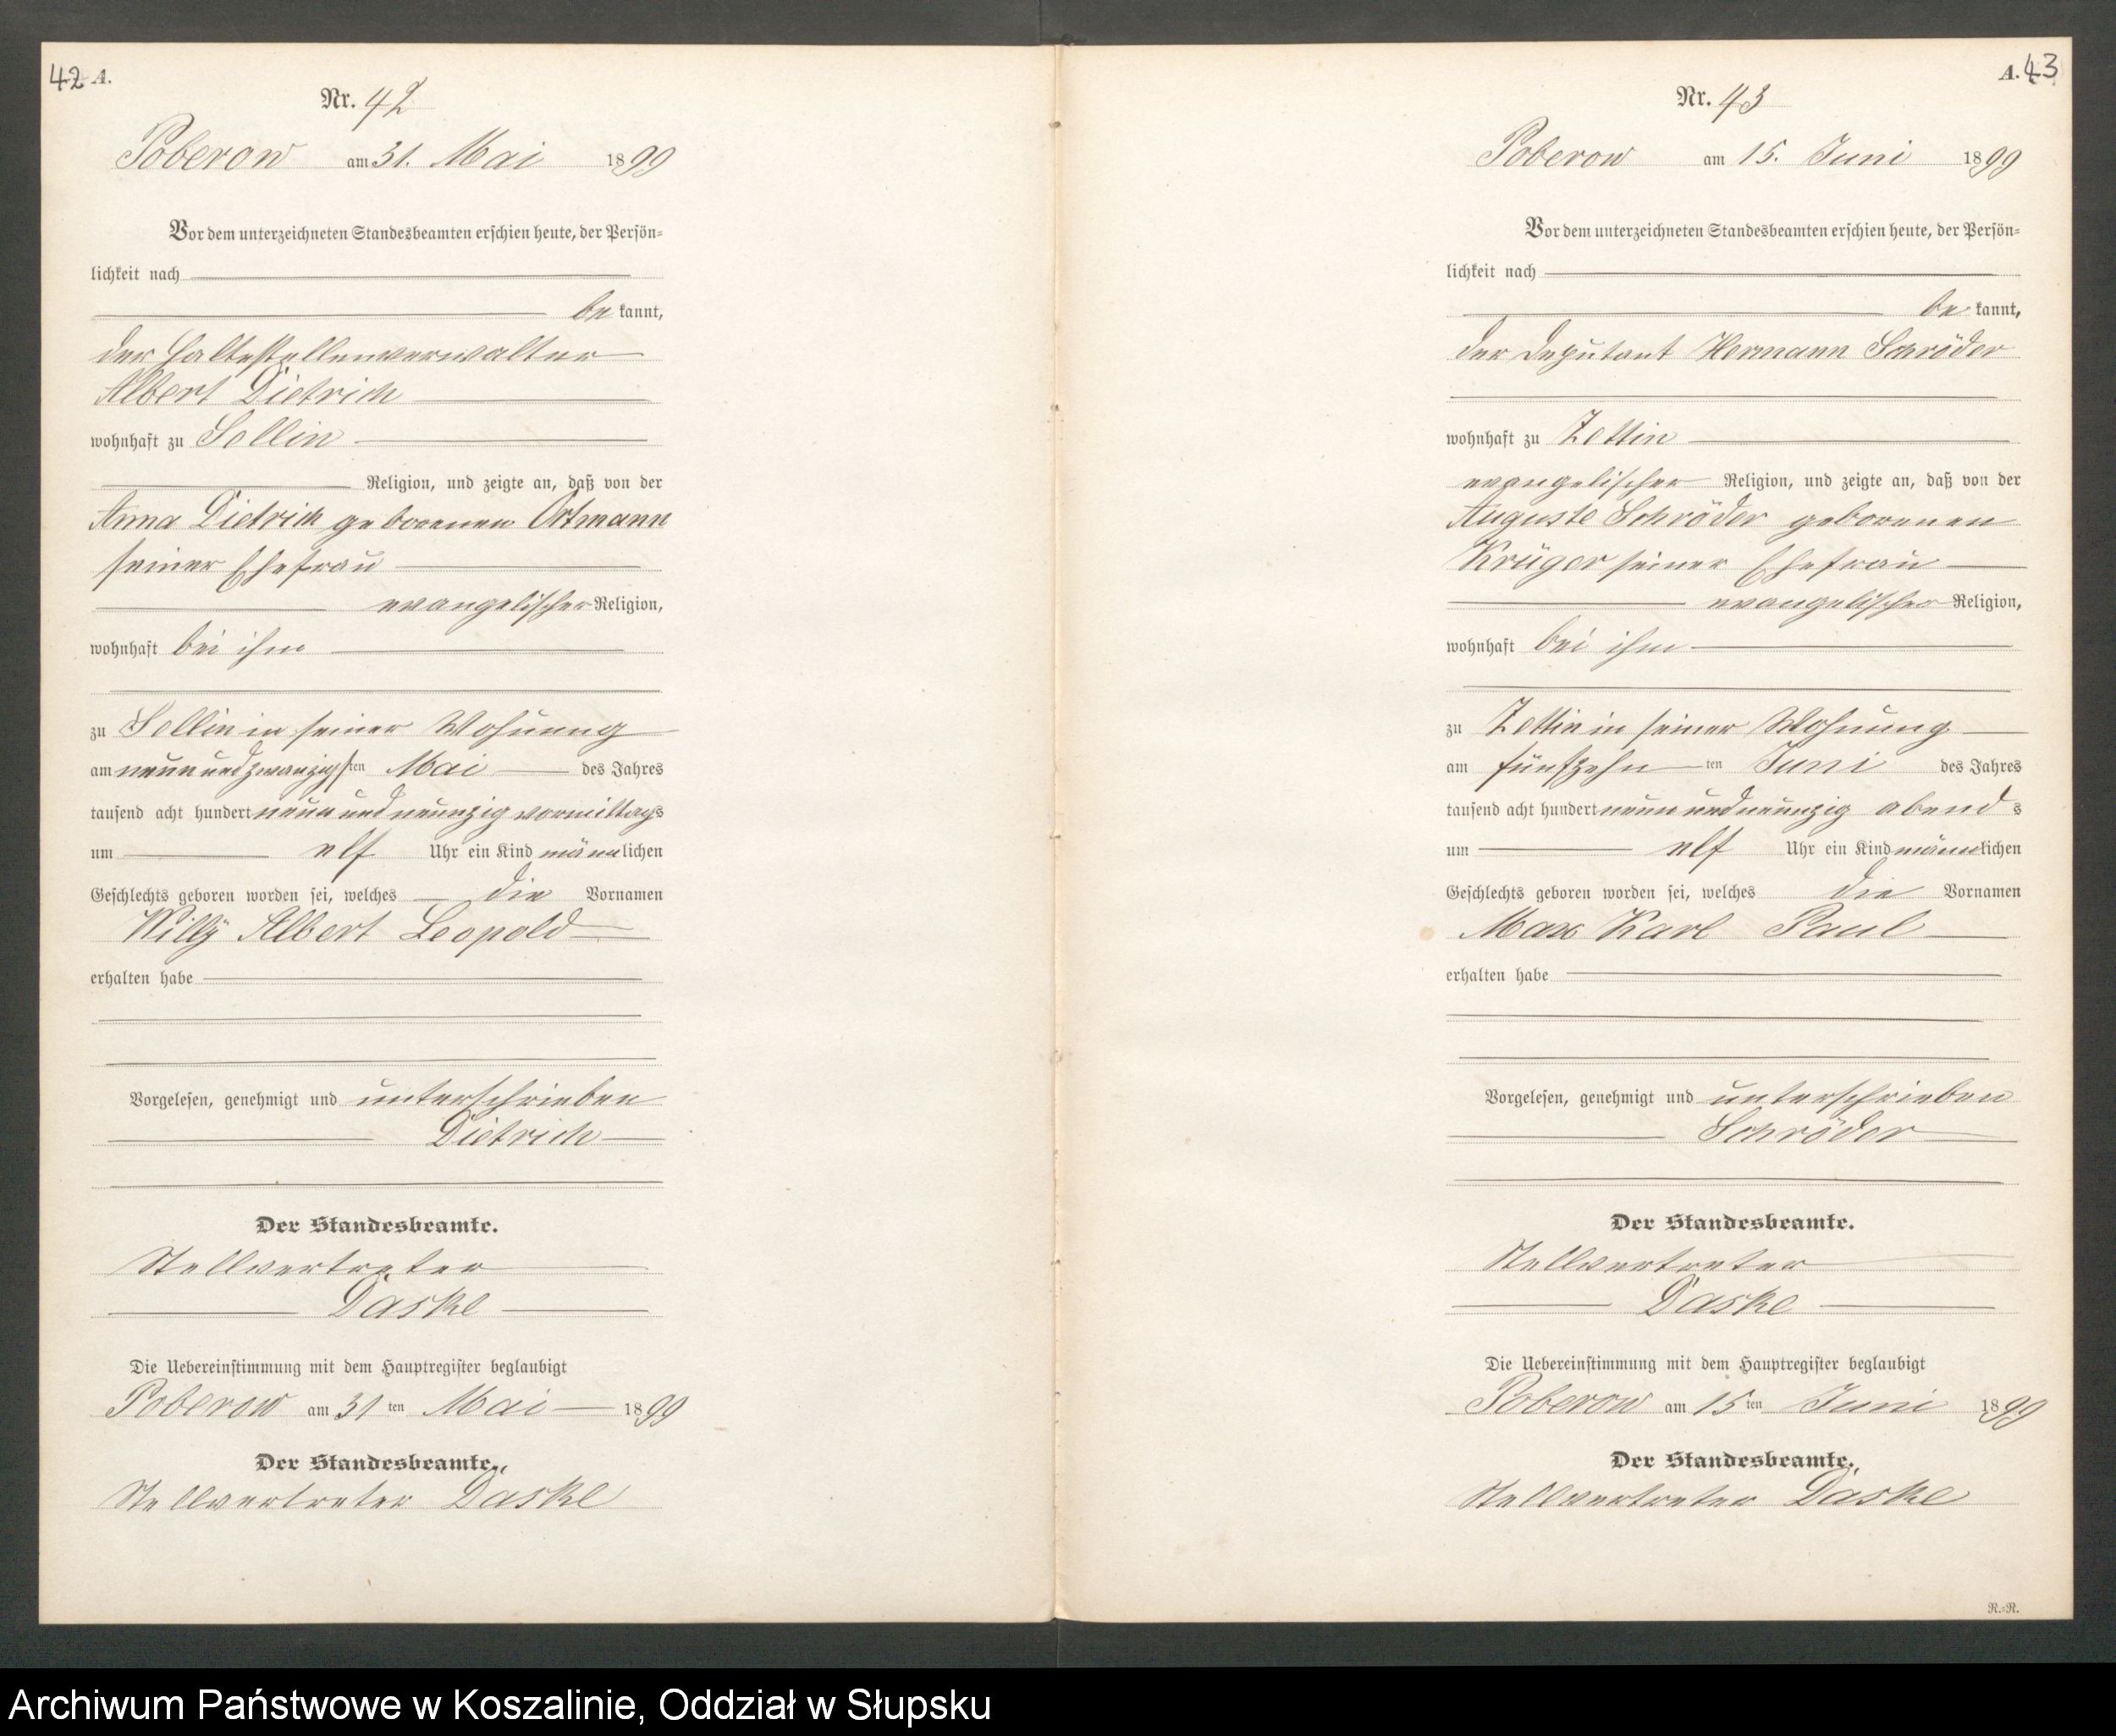 42 A.
Nr. 42
Poberow am 31. Mai 1899
Vor dem unterzeichneten Standesbeamten erschien heute, der Persön-
lichkeit nach
be kannt,
der Haltestellenverwalter
Albert Dietrich
wohnhaft zu Sellin
Religion, und zeigte an, daß von der
Anna Dietrich geborenen Ortmann
seiner Ehefrau
evangelischer Religion,
wohnhaft bei ihm
zu Sellin in seiner Wohnung
am neunundzwanzigsten Mai des Jahres
tausend acht hundert neunundneunzig vormittags
um elf Uhr ein Kind männlichen
Geschlechts geboren worden sei, welches die Vornamen
Willy Albert Leopold
erhalten habe
Vorgelesen, genehmigt und unterschrieben
Dietrich
Der Standesbeamte.
Stellvertreter
Daske
Die Uebereinstimmung mit dem Hauptregister beglaubigt
Poberow am 31 ten Mai 1899
Der Standesbeamte.
Stellvertreter Daske
A. 43
Nr. 43
Poberow am 15. Juni 1899
Vor dem unterzeichneten Standesbeamten erschien heute, der Persön-
lichkeit nach
be kannt,
der Deputant Hermann Schröder
wohnhaft zu Zettin
evangelischer Religion, und zeigte an, daß von der
Auguste Schröder geborenen
Krüger seiner Ehefrau
evangelischer Religion,
wohnhaft bei ihm
zu Zettin in seiner Wohnung
am fünfzehn ten Juni des Jahres
tausend acht hundert neunundneunzig abends
um elf Uhr ein Kind männlichen
Geschlechts geboren worden sei, welches die Vornamen
Max Karl Paul
erhalten habe
Vorgelesen, genehmigt und unterschrieben
Schröder
Der Standesbeamte.
Stellvertreter
Daske
Die Uebereinstimmung mit dem Hauptregister beglaubigt
Poberow am 15 ten Juni 1899
Der Standesbeamte.
Stellvertreter Daske
R.=R.
Archiwum Państwowe w Koszalinie, Oddział w Słupsku